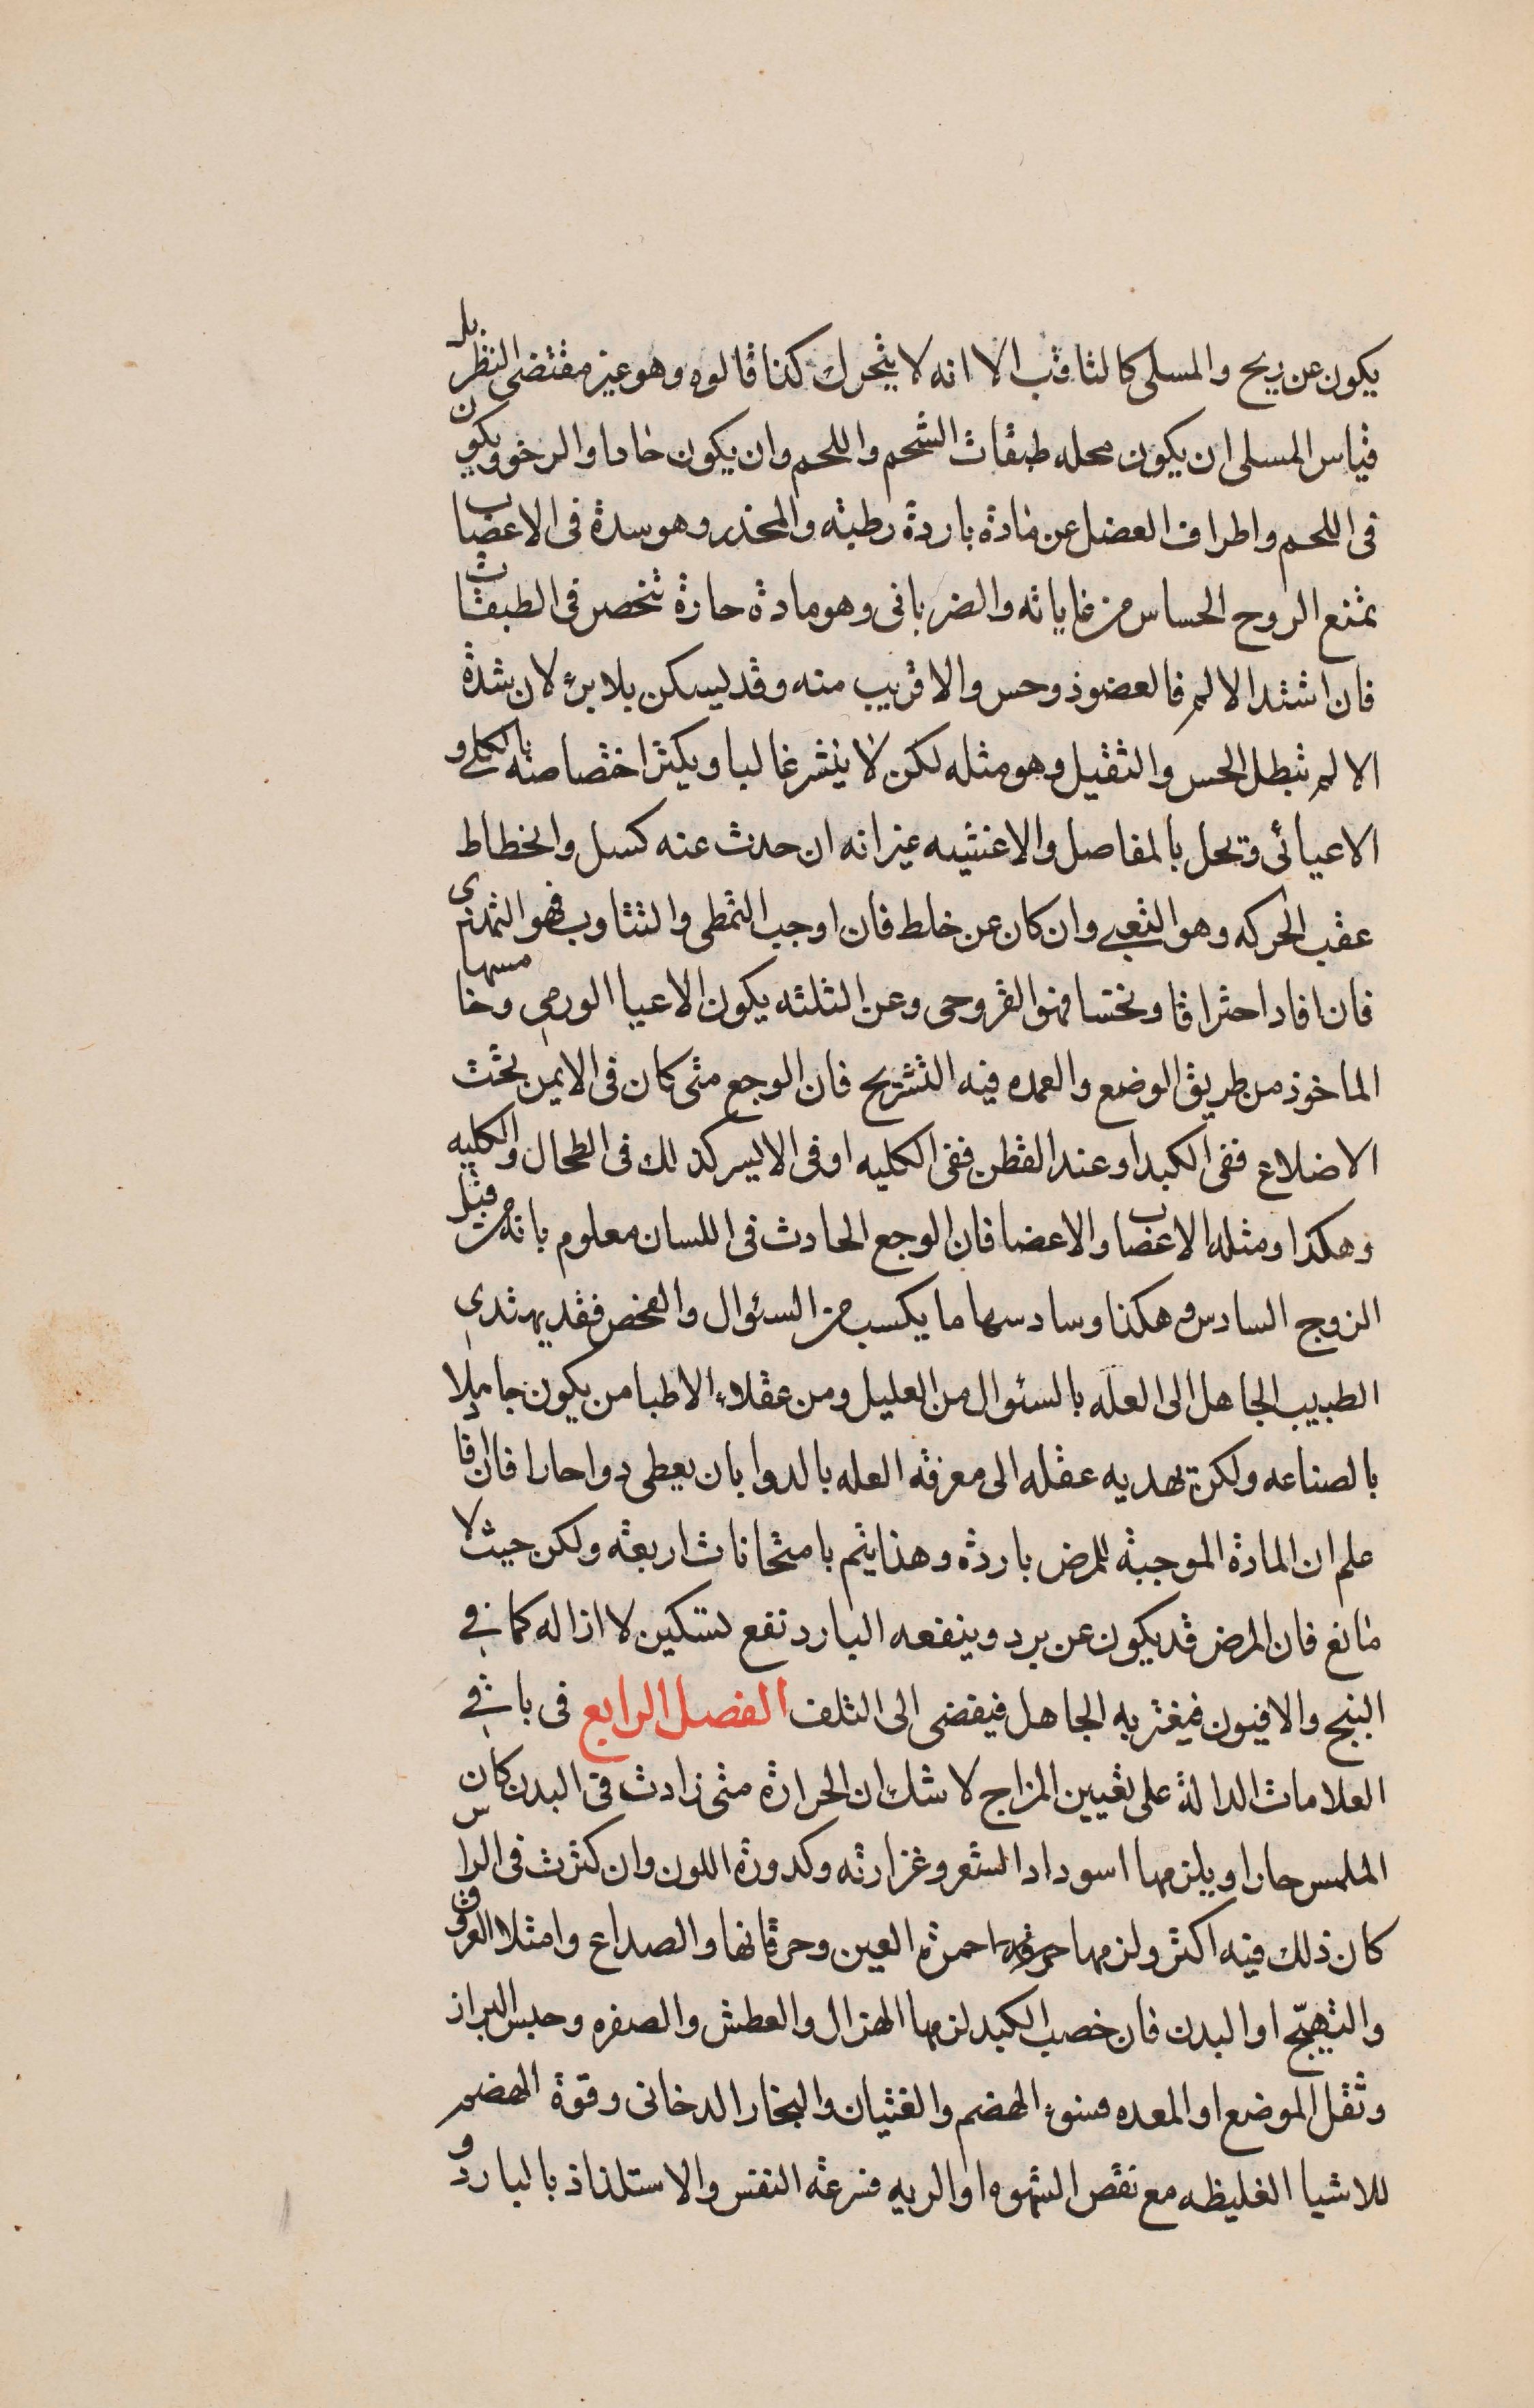 يكون عن ريح والمسلى كالثاقب الا انه لا يتحرك كذا قالوه وهو غير مقتضى النظر بل
قياس المسلى ان يكون محله طبقات الشحم واللحم وان يكون حادا والرخو ويكون
فى اللحم واطراف العضل عن مادة باردة رطبته والمخذر وهو سدة فى الاعصاب
تمتنع الروح الحساس من غاياته والضربانى وهو مادة حارة تنحصر فى الطبقات
فان اشتد الالم فالعضو ذو حس والا قريب منه وقد يسكن بلا برء لان شدة
الالم تبطل الحس والثقيل وهو مثله لكن لا ينشر غالبا ويكثر اختصاصه بالكلى و
الاعيائى ويحل بالمفاصل والاغشيه غير انه ان حدث عنه كسل وانحطاط
عقب الحركه وهو التعبى وان كان عن خلط فان اوجب التمطى والتثاوب فهو التمددى
فان افاد احتراقا ونخسا فهو القروحى وعن الثلثه يكون الاعيا الورمى وخامسها
الماخوذ من طريق الوضع والعمده فيه التشريح فان الوجع متى كان فى الايمن تحت
الاضلاع ففى الكبد او عند القطن ففى الكليه او فى الايسر كذلك فى الطحال والكليه
وهكذا ومثله الاعصاب والاعضا فان الوجع الحادث فى اللسان معلوم بانه من قبل
الزوج السادس وهكذا وسادسها ما يكسب من السئوال والفحص فقد يهتدى
الطبيب الجاهل الى العله بالسئوال من العليل ومن عقلاء الاطبا من يكون جاهلا
بالصناعه ولكن يهديه عقله الى معرفة العله بالدوا بان يعطى دوا حارا فان افاد
علم ان المادة الموجبة للمرض باردة وهذا يتم بامتحانات اربعة ولكن حيث لا
مانع فان المرض قد يكون عن برد وينفعه البارد نفع تسكين لا ازاله كما فى
البنج والافيون فيغتر به الجاهل فيفضى الى التلف الفصل الرابع فى باقى
العلامات الدالة على تعيين المزاج لا شك ان الحرارة متى زادت فى البدن كان
الملمس حارا ويلزمها اسوداد الشعر وغزارته وكدورة اللون وان كثرت فى الراس
كان ذلك فيه اكثر ولزمها حمرة العين وحرقانها والصداع وامتلا العروق
والتهيّج او البدن فان خصب الكبد لزمها الهزال والعطش والصفره وحبس البراز
وثقل الموضع او المعده فسوء الهضم والغثيان والبخار الدخانى وقوة الهضم
للاشيا الغليظه مع نقص الشهوه او الريه فسرعة النفس والاستلذاذ بالبارد و